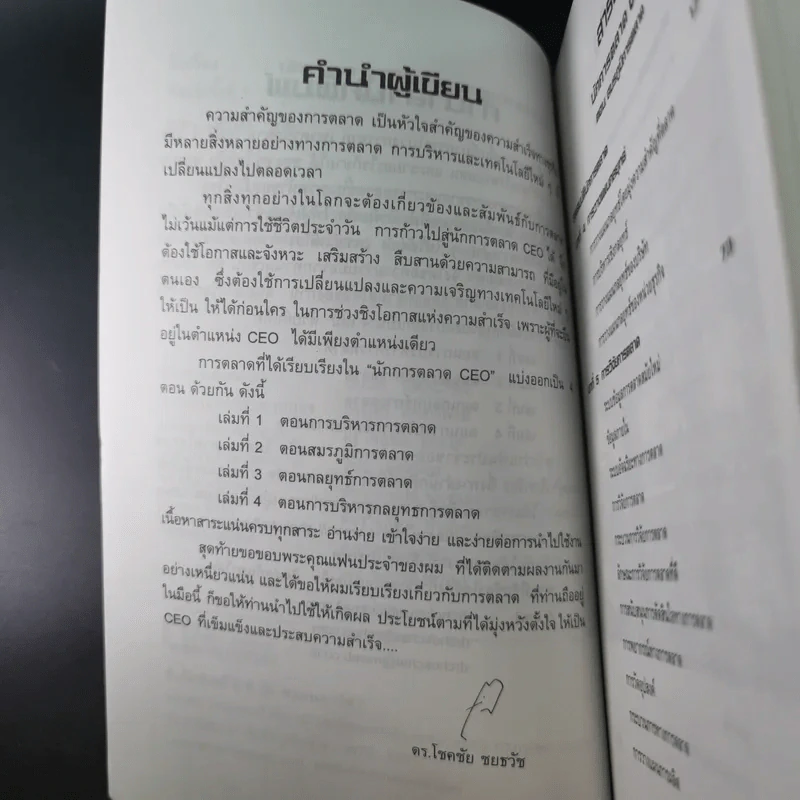 คำนำผู้เขียน
ความสำคัญของการตลาด เป็นหัวใจสำคัญของความสำเร็จ
มีหลายสิ่งหลายอย่างทางการตลาด การบริหารและเทคโนโลยีใหม่ ๆ
เปลี่ยนแปลงไปตลอดเวลา
ทุกสิ่งทุกอย่างในโลกจะต้องเกี่ยวข้องและสัมพันธ์กับการตลาด
ไม่เว้นแม้แต่การใช้ชีวิตประจำวัน การก้าวไปสู่นักการตลาด CEO ได้
ต้องใช้โอกาสและจังหวะ เสริมสร้าง สืบสานด้วยความสามารถ ที่มีอยู่
ตนเอง ซึ่งต้องใช้การเปลี่ยนแปลงและความเจริญทางเทคโนโลยีใหม่ ๆ
ให้เป็น ให้ได้ก่อนใคร ในการช่วงชิงโอกาสแห่งความสำเร็จ เพราะผู้ที่จะ
อยู่ในตำแหน่ง CEO ได้มีเพียงตำแหน่งเดียว
การตลาดที่ได้เรียบเรียงใน "นักการตลาด CEO" แบ่งออกเป็น 4
ตอน ด้วยกัน ดังนี้
เล่มที่ 1 ตอนการบริหารการตลาด
เล่มที่ 2 ตอนสมรภูมิการตลาด
เล่มที่ 3 ตอนกลยุทธ์การตลาด
เล่มที่ 4 ตอนการบริหารกลยุทธการตลาด
เนื้อหาสาระแน่นครบทุกสาระ อ่านง่าย เข้าใจง่าย และง่ายต่อการนำไปใช้งาน
สุดท้ายขอขอบพระคุณแฟนประจำของผม ที่ได้ติดตามผลงานกันมา
อย่างเหนี่ยวแน่น และได้ขอให้ผมเรียบเรียงเกี่ยวกับการตลาด ที่ท่านถืออยู่
ในมือนี้ ก็ขอให้ท่านนำไปใช้ให้เกิดผล ประโยชน์ตามที่ได้มุ่งหวังตั้งใจ ให้เป็น
CEO ที่เข้มแข็งและประสบความสำเร็จ....
ดร.โชคชัย ชยธวัช
บทที่ 5 การวิจัยการตลาด
ระบบข้อมูลการตลาดสมัยใหม่
ข้อมูลภายใน
การวิจัยการตลาด
กระบวนการวิจัยการตลาด
ลักษณะการวิจัยการตลาดที่ดี
การพยากรณ์ทางการตลาด
การวัดอุปสงค์
กระบวนการทางการตลาด